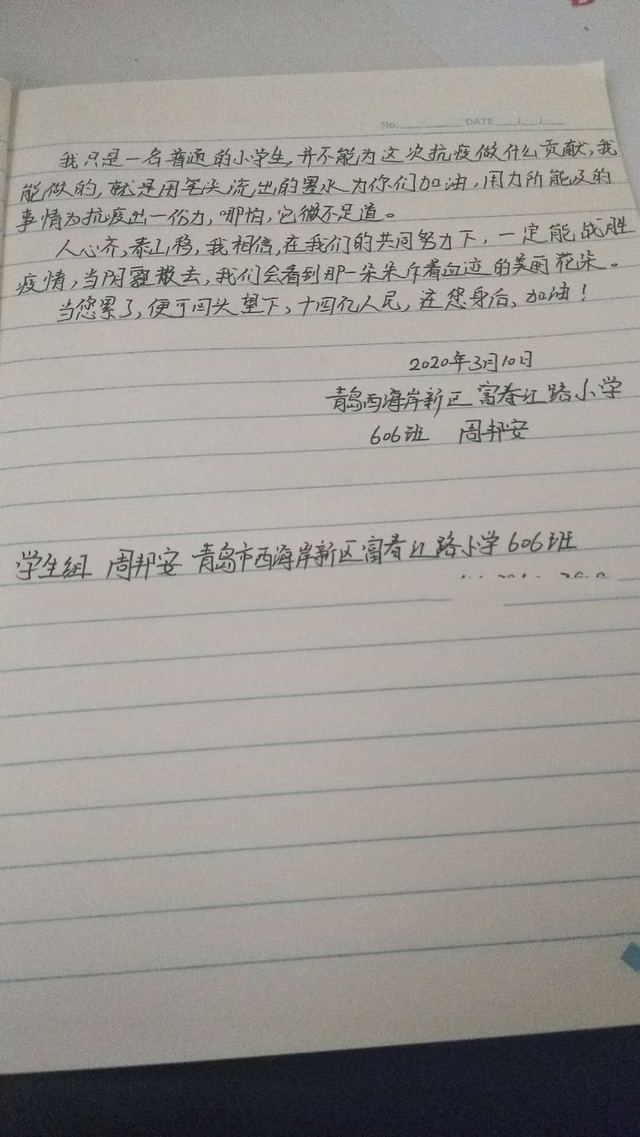 No. DATE / /
我只是一名普通的小学生,并不能为这次抗疫做什么贡献,我
能做的,就是用笔头流出的墨水为你们加油,用力所能及的
事情为抗疫出一份力,哪怕,它微不足道。
人心齐,泰山移,我相信,在我们的共同努力下,一定能战胜
疫情,当阴霾散去,我们会看到那一朵朵斥着血迹的美丽花朵。
当您累了,便可回头望下,十四亿人民,在您身后,加油!
2020年3月10日
青岛西海岸新区富春江路小学
606班 周邦安
学生组 周邦安 青岛市西海岸新区富春江路小学606班